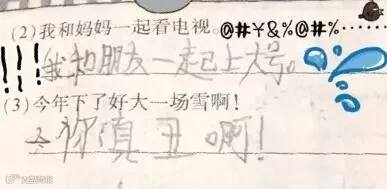 (2)我和妈妈一起看电视。@#¥&%@#%……
!!!我和朋友一起上大号。
(3)今年下了好大一场雪啊！
你真丑啊！